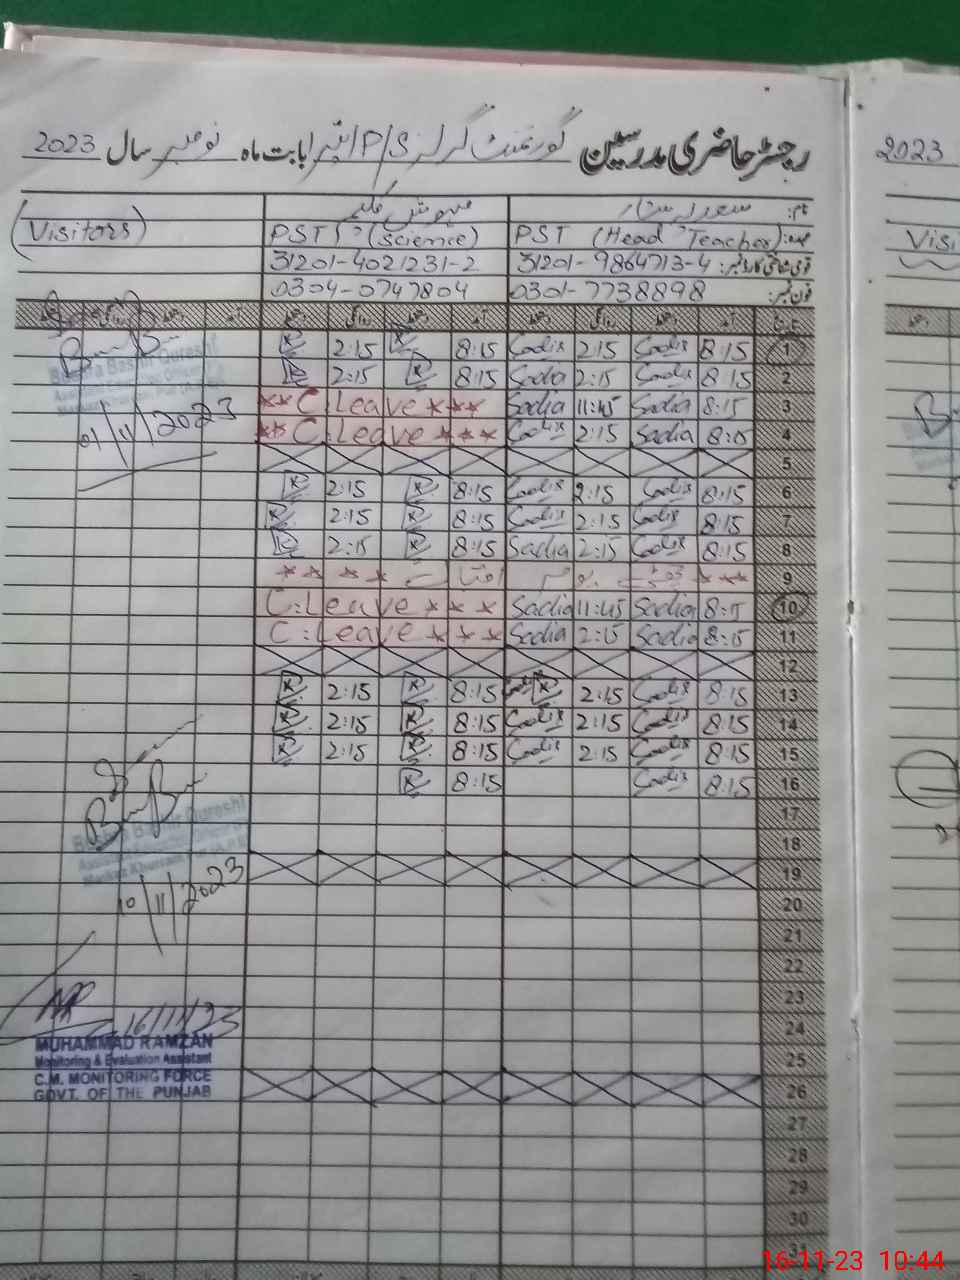 رجسٹر حاضری مدرسین گورنمنٹ گرلز P/S بابت ماہ نومبر سال 2023
2023
نام: سعدیہ ستار مہوش کلیم (Visitors)
عہدہ: PST (Head Teacher) PST (Science)
قومی شناختی کارڈ نمبر: 31201-9864713-4 31201-4021231-2
فون نمبر: 0301-7738898 0304-0747804
تاریخ آمد دستخط روانگی دستخط آمد دستخط روانگی دستخط آمد
1 8:15 Sadia 2:15 Sadia 8:15 2:15
2 8:15 Sadia 2:15 Sadia 8:15 2:15
3 8:15 Sadia 11:45 Sadia **C.Leave***
4 8:15 Sadia 2:15 Sadia **C.Leave***
5
6 8:15 Sadia 2:15 Sadia 8:15 2:15
7 8:15 Sadia 2:15 Sadia 8:15 2:15
8 8:15 Sadia 2:15 Sadia 8:15 2:15
9 *** یوم ****
10 8:15 Sadia 11:45 Sadia C:Leave***
11 8:15 Sadia 2:15 Sadia C:Leave***
12
13 8:15 Sadia 2:15 8:15 2:15
14 8:15 Sadia 2:15 Sadia 8:15 2:15
15 8:15 Sadia 2:15 Sadia 8:15 2:15
16 8:15 Sadia 8:15
17
18
19
20
21
22
23
24
25
26
27
28
29
30
31
Bushra Bashir Qureshi
Assistant Education Officer
01/11/2023
Bushra Bashir Qureshi
Assistant Education Officer
10/11/2023
16/11/23
MUHAMMAD RAMZAN
Monitoring & Evaluation Assistant
C.M. MONITORING FORCE
GOVT. OF THE PUNJAB
Visi
16-11-23 10:44